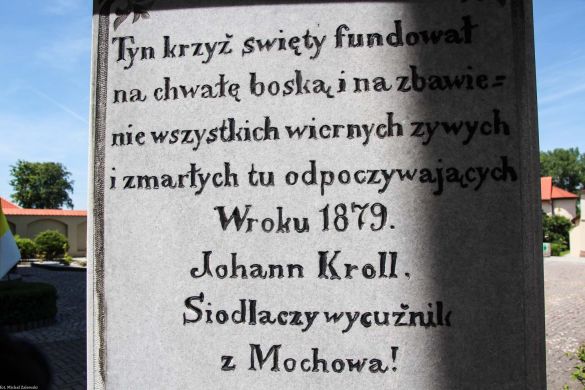 Tyn krzyż swięty fundował
na chwałę boską, i na zbawie=
nie wszystkich wiernych zywych
i zmarłych tu odpoczywających
W roku 1879.
Johann Kroll,
Siodlaczy wycużnik
z Mochowa!
fot. Michał Zalewski